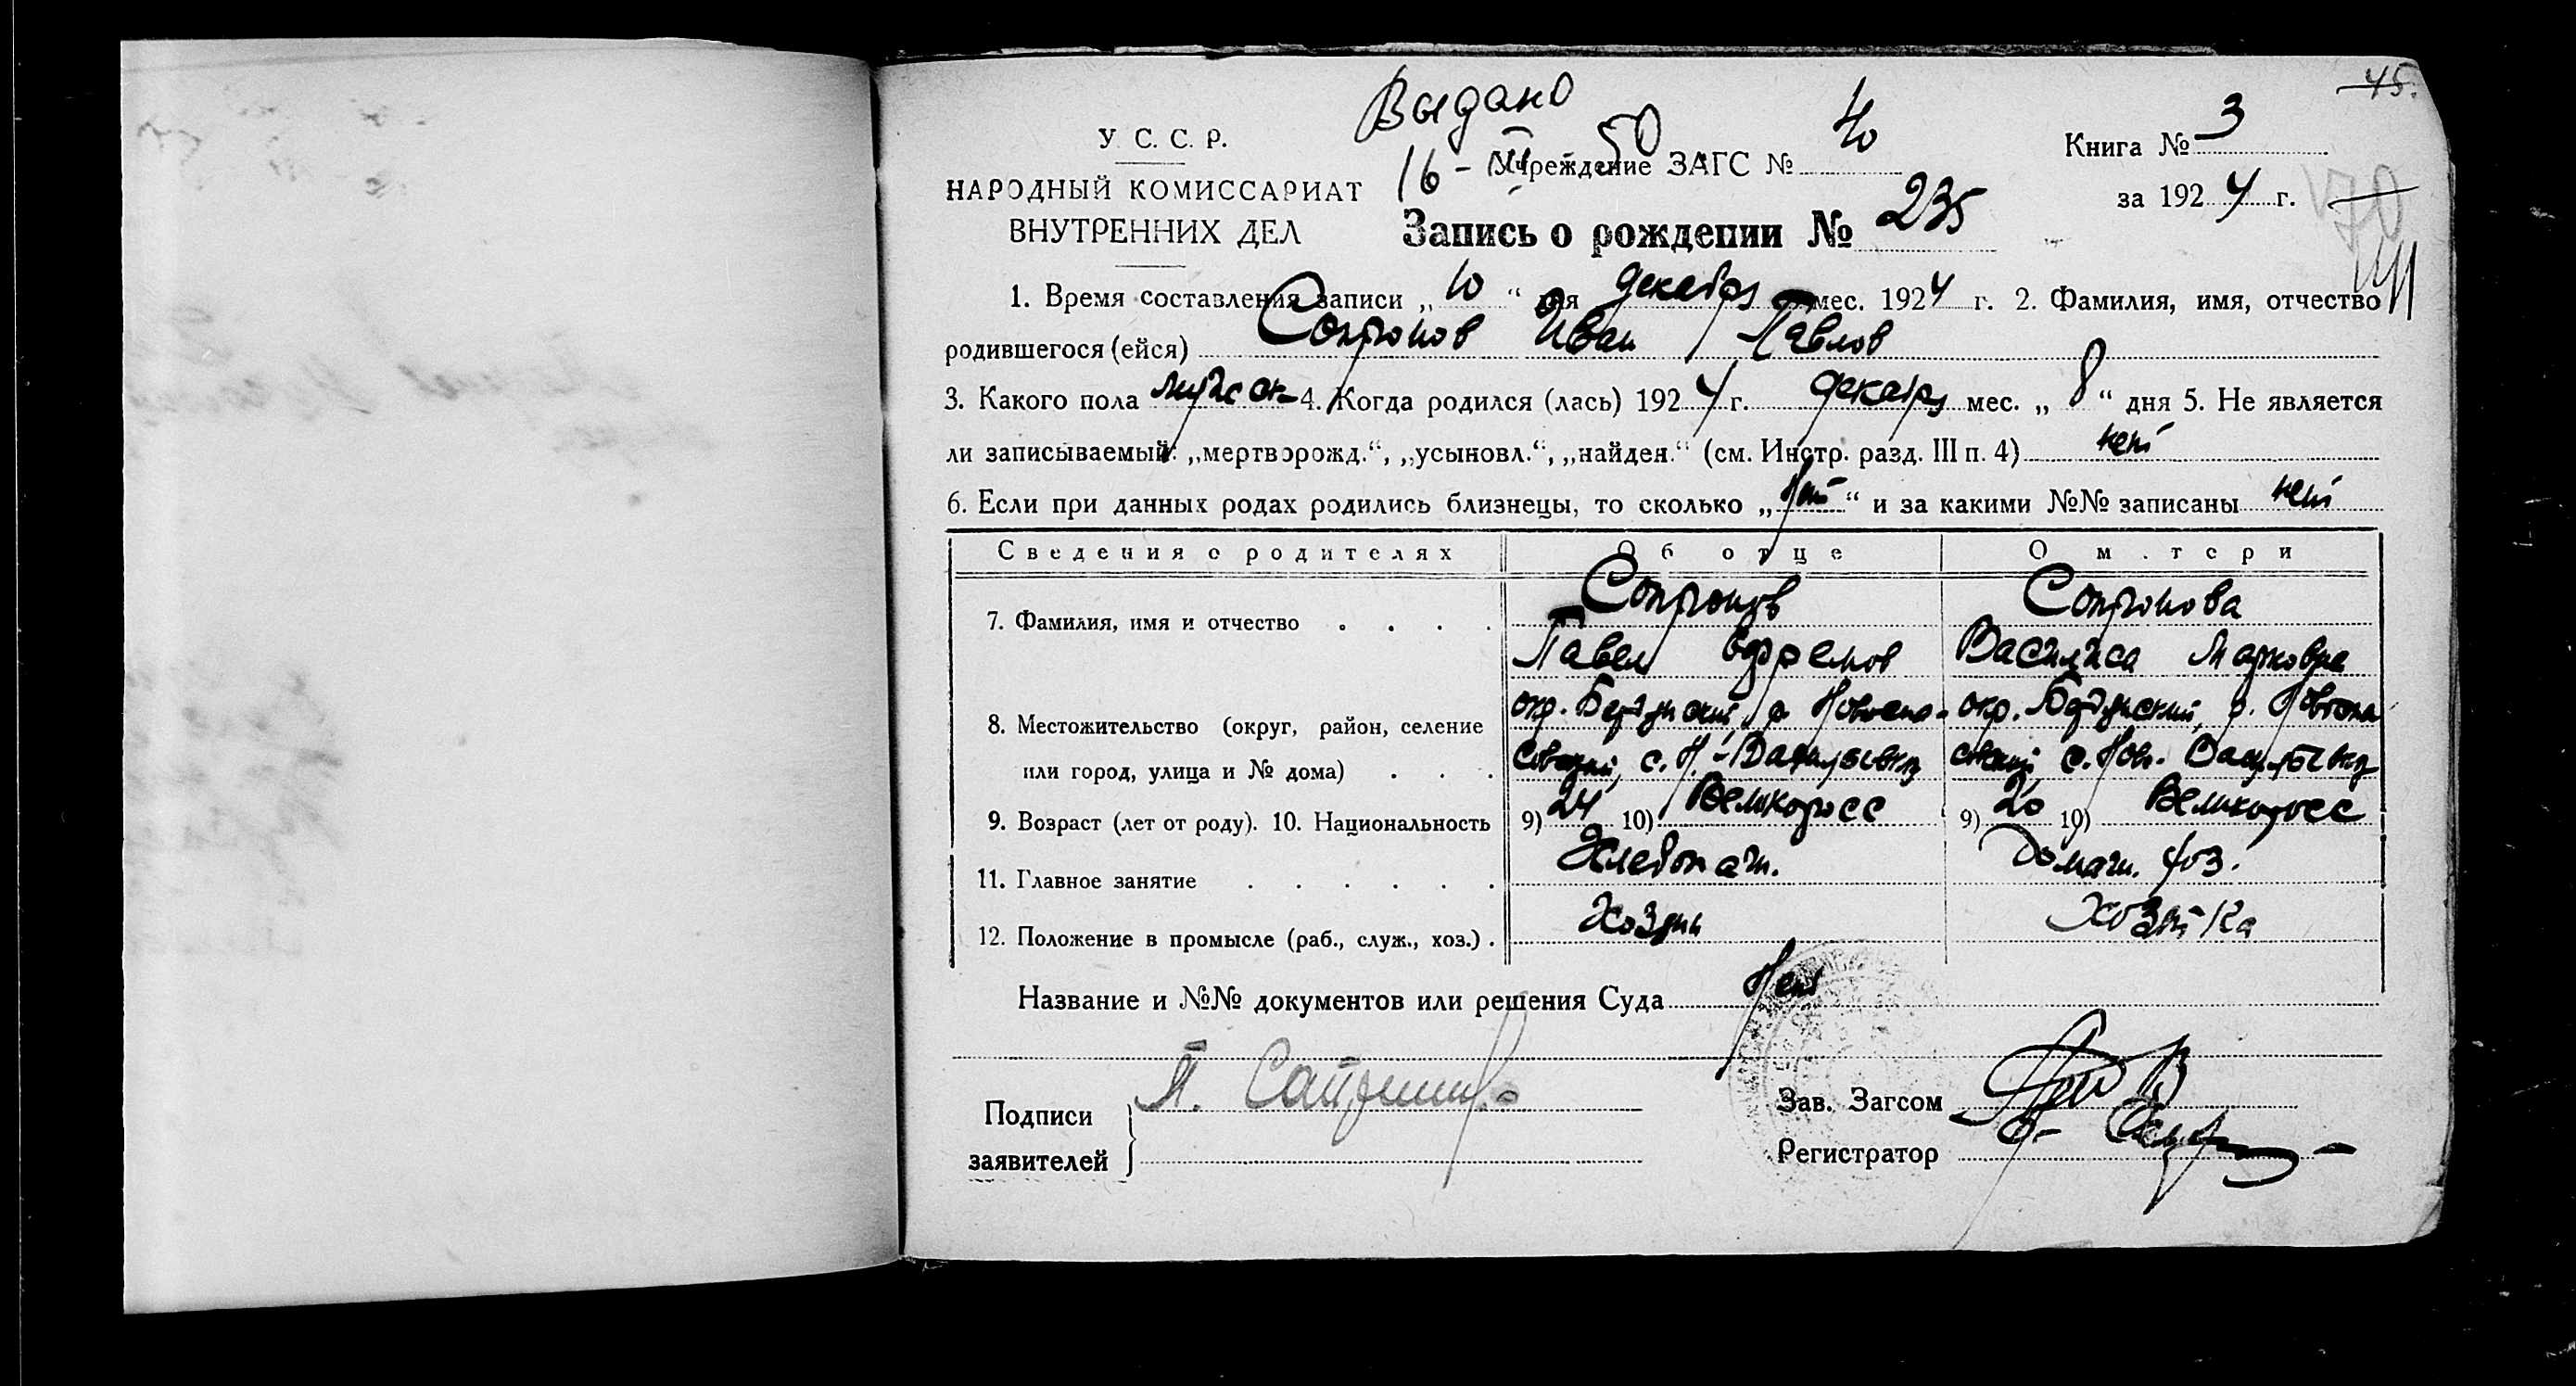 45.
Выдано
У. С. С. Р.
16 - 50
Учреждение ЗАГС № 40
Книга № 3
НАРОДНЫЙ КОМИССАРИАТ
ВНУТРЕННИХ ДЕЛ
за 1924 г.
Запись о рождении № 235
1. Время составления записи „10“ дня декабря мес. 1924 г. 2. Фамилия, имя, отчество
родившегося (ейся) Сопронов Иван Павлов
3. Какого пола мужск- 4. Когда родился (лась) 1924 г. декабря мес. „8“ дня 5. Не является
ли записываемый: „мертворожд.“, „усыновл.“, „найден.“ (см. Инстр. разд. III п. 4) нет
6. Если при данных родах родились близнецы, то сколько „Нет“ и за какими №№ записаны нет
Сведения о родителях Об отце О м.тери
7. Фамилия, имя и отчество Сопронов Сопронова
Павел Ефремов Василиса Марковна
8. Местожительство (округ, район, селение окр. Бердянский, р. Новоспа- окр. Бердянский, р. Новоспа
или город, улица и № дома) совский, с. Н.-Васильевка совский с. Нов. Васильевка
9. Возраст (лет от роду). 10. Национальность 9) 24 10) Великоросс 9) 20 10) Великоросс
11. Главное занятие Хлебопаш. Домаш. хоз.
12. Положение в промысле (раб., служ., хоз.) Хозяин Хозяйка
Название и №№ документов или решения Суда Нет
Подписи
заявителей
П.
Зав. Загсом
Регистратор